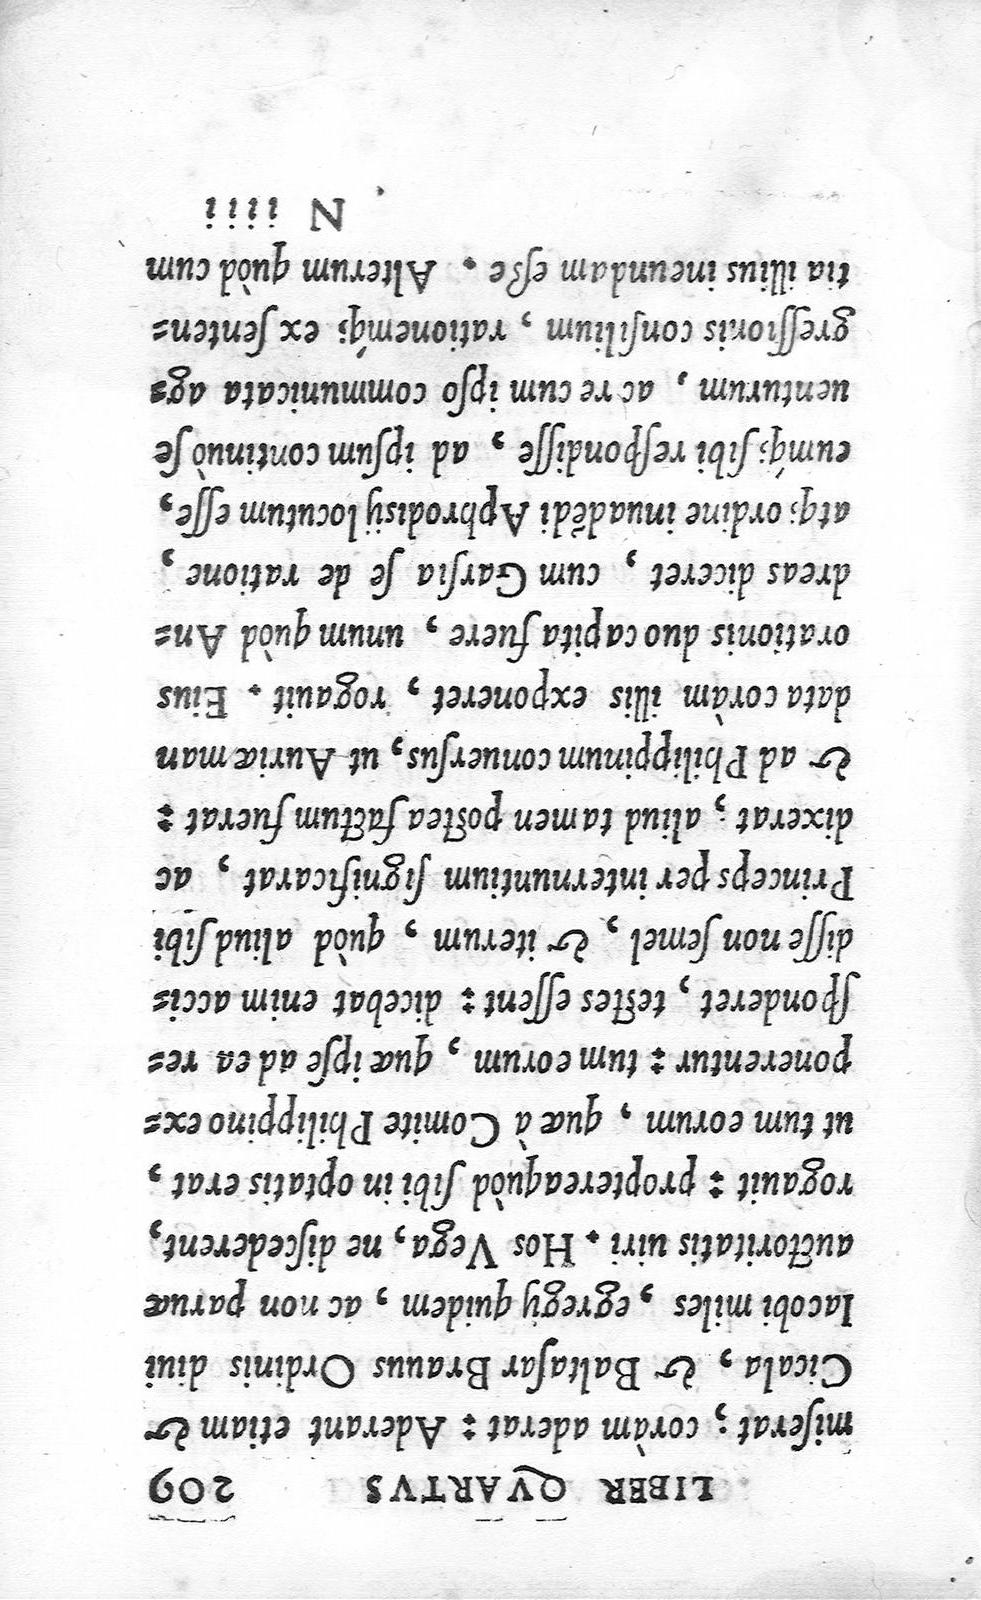 LIBER QVARTVS 209
miſerat; coràm aderat: Aderant etiam &
Cicala, & Baltaſar Brauus Ordinis diui
Iacobi miles, egregij quidem, ac non paruæ
auctoritatis uiri. Hos Vega, ne diſcederent,
rogauit: proptereaquòd ſibi in optatis erat,
ut tum eorum, quæ à Comite Philippino ex=
ponerentur: tum eorum, quæ ipſe ad ea re=
ſponderet, teſtes eſſent: dicebat enim acci=
diſſe non ſemel, & iterum, quòd aliud ſibi
Princeps per internuntium ſignificarat, ac
dixerat; aliud tamen poſtea factum fuerat:
& ad Philippinum conuerſus, ut Auriæ man
data coràm illis exponeret, rogauit. Eius
orationis duo capita fuere, unum quòd An=
dreas diceret, cum Garſia ſe de ratione,
atq; ordine inuadẽdi Aphrodisij locutum eſſe,
eumq́; ſibi reſpondiſſe, ad ipſum continuò ſe
uenturum, ac re cum ipſo communicata ag=
greſſionis conſilium, rationemq́; ex ſenten=
tia illius ineundam eſſe. Alterum quòd cum
N iiii